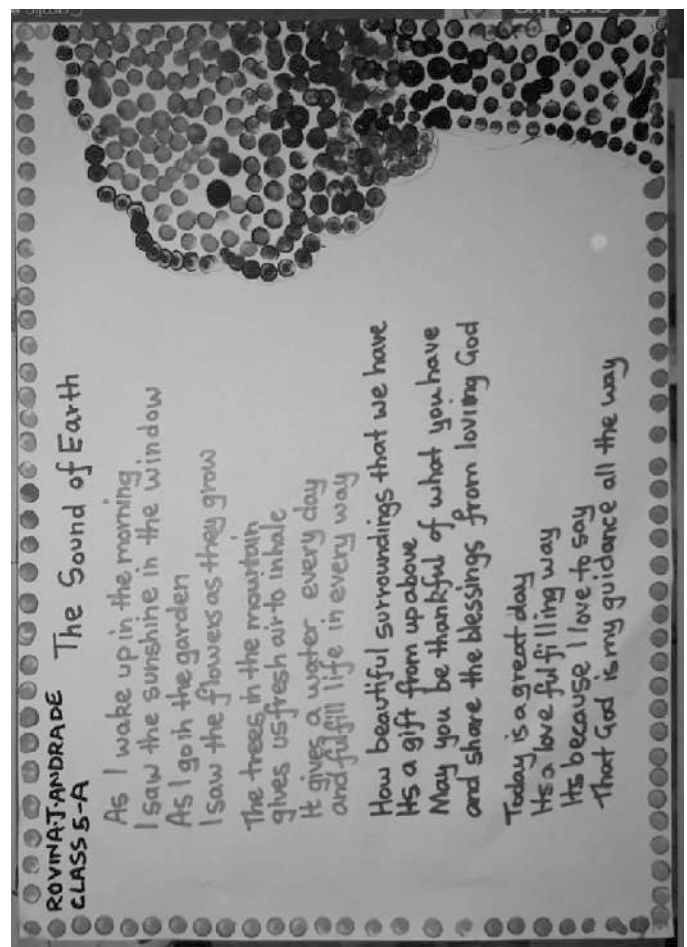 ROVINA·J·ANDRADE
CLASS 5-A
The Sound of Earth
As I wake up in the morning
I saw the sunshine in the window
As I go in the garden
I saw the flowers as they grow
The trees in the mountain
gives us fresh air to inhale
It gives a water every day
and fulfill life in every way
How beautiful surroundings that we have
Its a gift from up above
May you be thankful of what you have
and share the blessings from loving God
Today is a great day
Its a love fulfilling way
Its because I love to say
That God is my guidance all the way